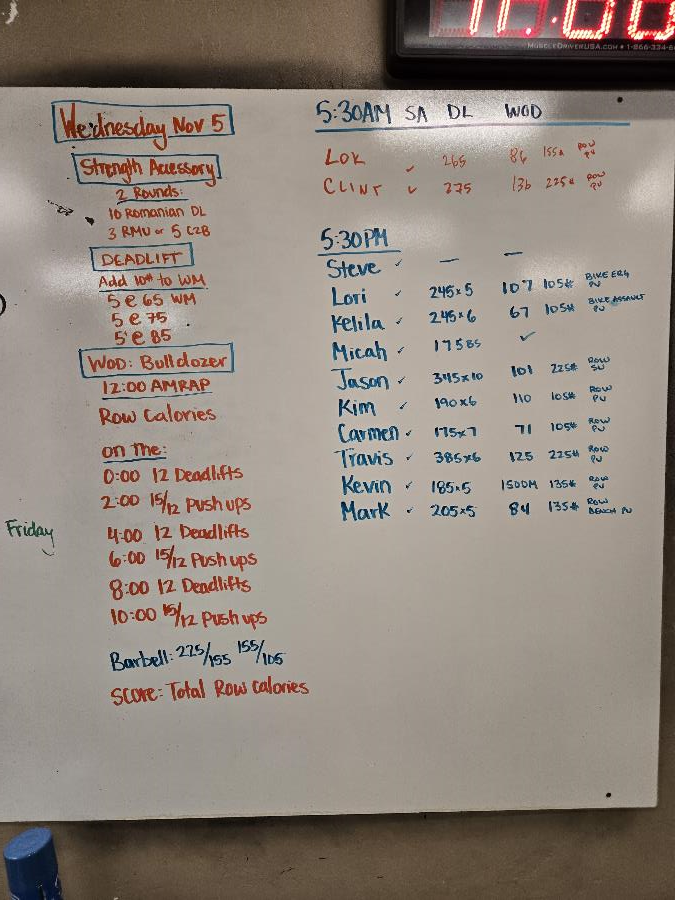 11:00
MUSCLEDRIVERUSA.COM • 1-866-334-8
Wednesday Nov 5
Strength Accessory
2 Rounds:
10 Romanian DL
3 RMU or 5 C2B
DEADLIFT
Add 10# to WM
5 @ 65 WM
5 @ 75
5 @ 85
WOD: Bulldozer
12:00 AMRAP
Row Calories
on the:
0:00 12 Deadlifts
2:00 15/12 Push ups
4:00 12 Deadlifts
6:00 15/12 Push ups
8:00 12 Deadlifts
10:00 15/12 Push ups
Barbell: 225/155 155/105
SCORE: Total Row Calories
Friday
5:30AM SA DL WOD
LOK ✓ 265 86 155# ROW PU
CLINT ✓ 275 136 225# ROW PU
5:30PM
Steve ✓ — —
Lori ✓ 245x5 107 105# BIKE ERG PU
Kelila ✓ 245x6 67 105# BIKE ASSAULT PU
Micah ✓ 175 85 ✓
Jason ✓ 345x10 101 225# ROW SU
Kim ✓ 190x6 110 105# ROW PU
Carmen ✓ 175x7 71 105# ROW PU
Travis ✓ 385x6 125 225# ROW PU
Kevin ✓ 185x5 1500M 135# ROW PU
Mark ✓ 205x5 84 135# ROW BENCH PU